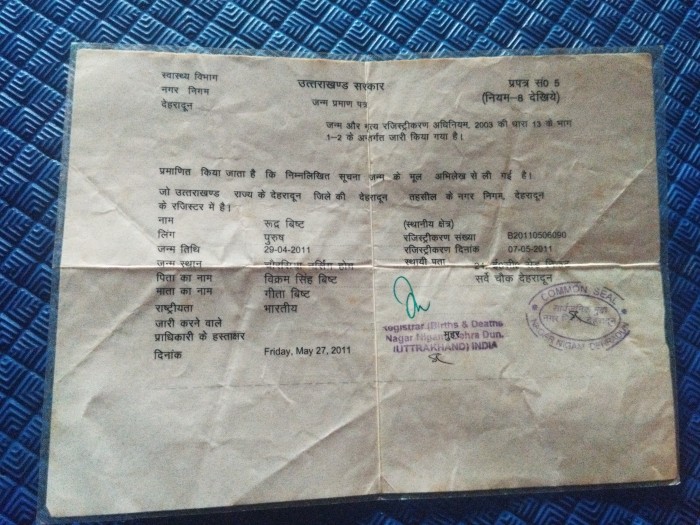 स्वास्थ्य विभाग
नगर निगम
देहरादून
उत्तराखण्ड सरकार
जन्म प्रमाण पत्र
प्रपत्र सं0 5
(नियम–8 देखिये)
जन्म और मृत्य रजिस्ट्रीकरण अधिनियम, 2003 की धारा 13 के भाग
1–2 के अर्न्तगत जारी किया गया है।
प्रमाणित किया जाता है कि निम्नलिखित सूचना जन्म के मूल अभिलेख से ली गई है।
जो उत्तराखण्ड राज्य के देहरादून जिले की देहरादून तहसील के नगर निगम, देहरादून
के रजिस्टर में है।
नाम रूद्र बिष्ट (स्थानीय क्षेत्र)
लिंग पुरुष रजिस्ट्रीकरण संख्या B20110506090
जन्म तिथि 29-04-2011 रजिस्ट्रीकरण दिनांक 07-05-2011
जन्म स्थान नर्सिंग होम स्थायी पता 24,
पिता का नाम विक्रम सिंह बिष्ट सर्वे चौक देहरादून
माता का नाम गीता बिष्ट
राष्ट्रीयता भारतीय
जारी करने वाले
प्राधिकारी के हस्ताक्षर
दिनांक Friday, May 27, 2011
Registrar (Births & Deaths
Nagar Nigam Dehra Dun.
मुहर
(UTTRAKHAND) INDIA
COMMON SEAL
NAGAR NIGAM DEHRADUN